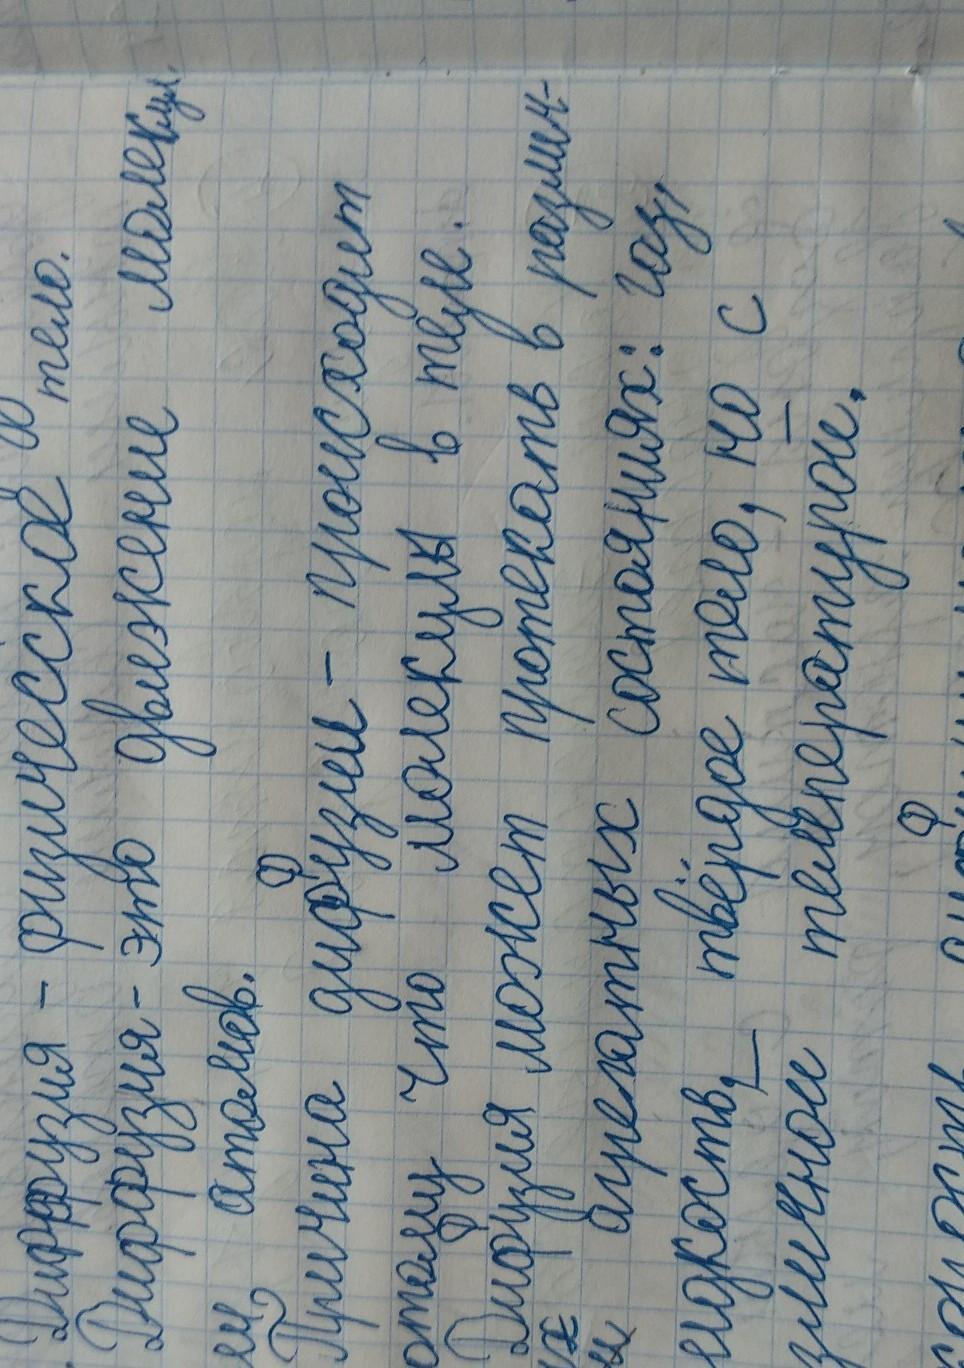 Диффузия - физическое тело.
Дифузия - это движение молекул.
и атомов.
Причина дифузии - происходит
потому что молекулы в теле.
Дифузия может протекать в различ-
ных агрегатных состояниях: газ,
жидкость, твёрдое тело, но с
различной температурой.